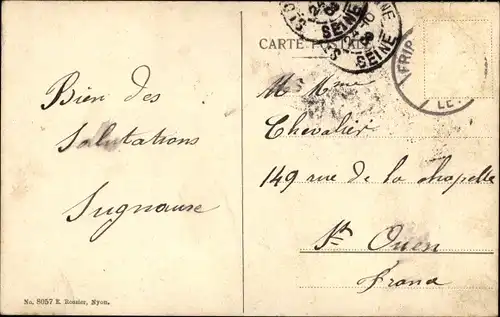 CARTE POSTALE
SEINE
SEINE
FRIB
LE
Bien des
Salutations
M Mme
Chevalier
149 rue de la chapelle
St Ouen
No. 8057 E. Rossier, Nyon.